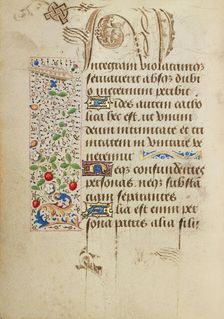 integram inviolatamq
seruauerit absq dubi
o ineternum peribit
Fides autem catho
lica hec est. ut unum
deum in trinitate et tri
nitatem in unitate
veneremur
Neq confundentes
personas neq substan
ciam separantes
Alia est enim per
sona patris alia filij